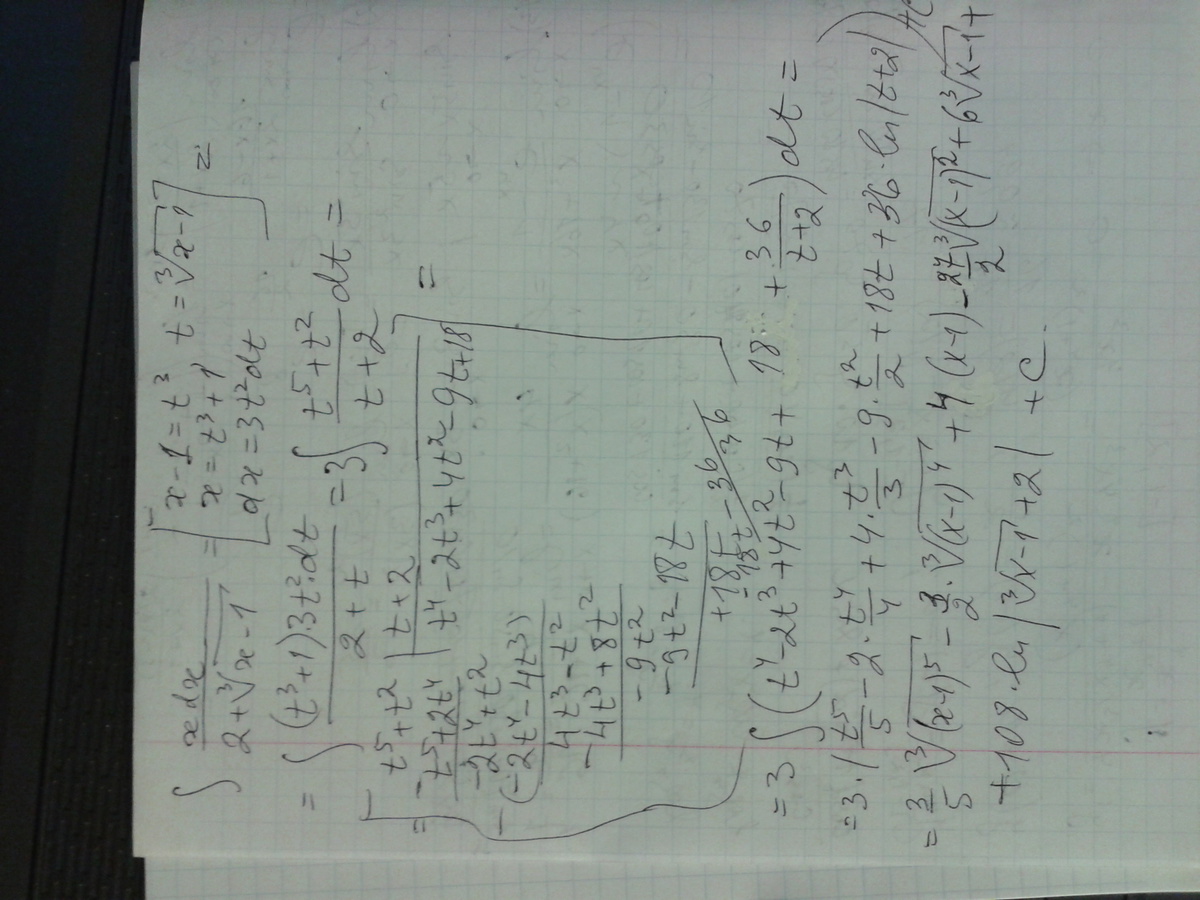 ∫ xdx / (2+∛(x-1)) = [x-1=t³ t=∛(x-1)] =
x=t³+1
dx=3t²dt
= ∫ (t³+1)3t²·dt / (2+t) = 3∫ (t⁵+t²)/(t+2) dt =
= [ t⁵+t² | t+2
- t⁵+2t⁴ | t⁴-2t³+4t²-9t+18 ] =
-2t⁴+t²
-(-2t⁴-4t³)
4t³-t²
- 4t³+8t²
-9t²
- -9t²-18t
+18t
-18t-36
36
= 3∫(t⁴-2t³+4t²-9t+18+36/(t+2))dt =
=3·(t⁵/5-2·t⁴/4+4·t³/3-9·t²/2+18t+36·ln|t+2|)+C
= 3/5 ∛(x-1)⁵ - 3/2·∛(x-1)⁴ + 4(x-1) - 27/2 ∛(x-1)² + 6∛(x-1) +
+108·ln|∛(x-1)+2| +C